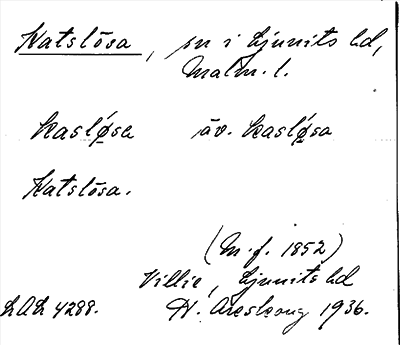 Katslösa, sn i Ljunits hd,
Malm. l.
kasløsa äv. kasløsa
Katslösa.
(M.f. 1852)
Villie, Ljunits hd
LAL 4288. H. Areskoug 1936.